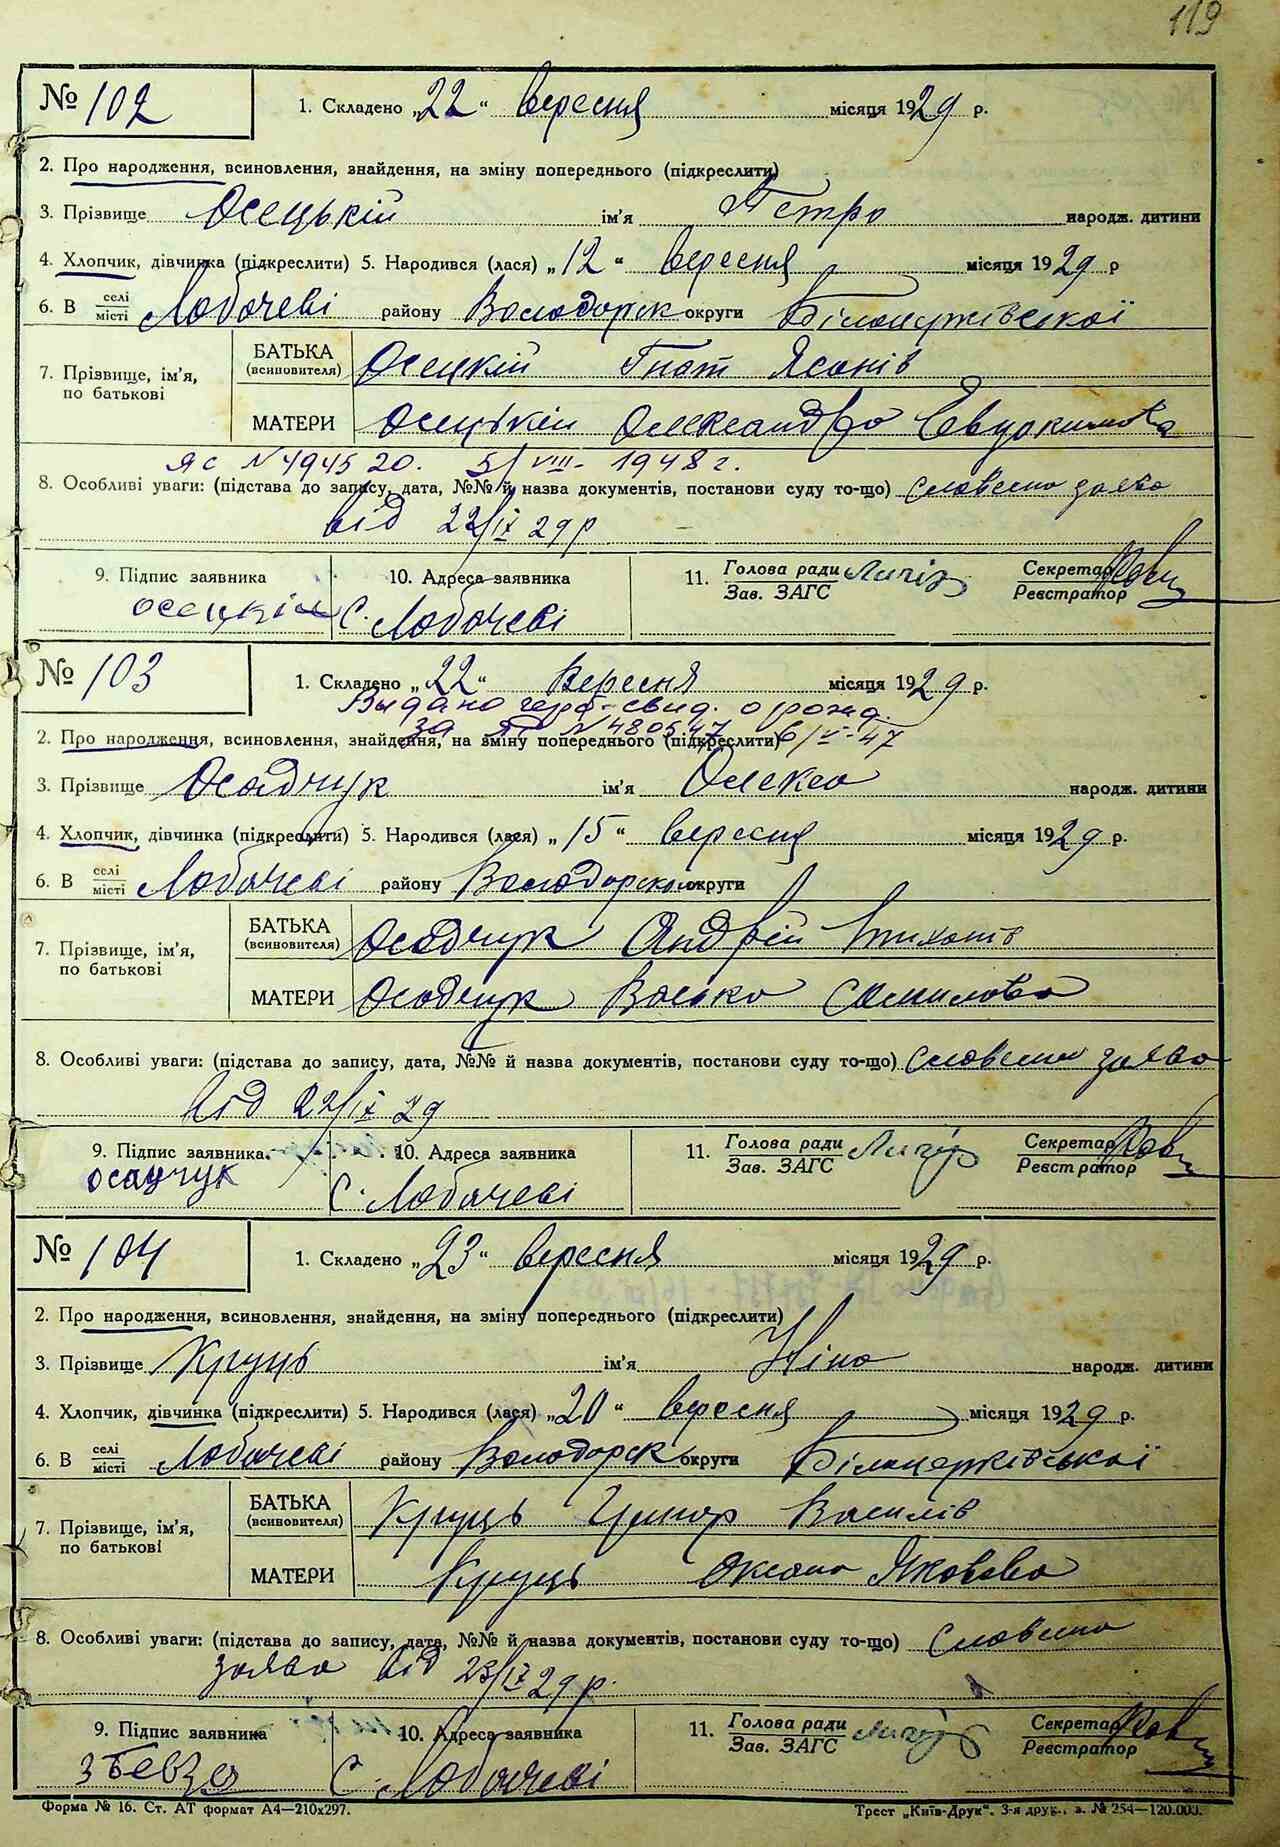 119
№ 102 1. Складено „22" вересня місяця 1929 р.
2. Про народження, всиновлення, знайдення, на зміну попереднього (підкреслити)
3. Прізвище Осецькій ім'я Петро народж. дитини
4. Хлопчик, дівчинка (підкреслити) 5. Народився (лася) „12" вересня місяця 1929 р
6. В селі/місті Лобачеві району Володарск округи Білоцерківської
7. Прізвище, ім'я, по батькові
БАТЬКА (всиновителя) Осецкій Гнат Ясонів
МАТЕРИ Осецькій Олександра Євдокимова
яс №494520. 5/VIII- 1948 г.
8. Особливі уваги: (підстава до запису, дата, №№ й назва документів, постанови суду то-що) Словесна заява
від 22/IX 29 р
9. Підпис заявника 10. Адреса заявника 11. Голова ради/Зав. ЗАГС Секретар/Реєстратор
осецкій с. Лобачеві
№ 103 1. Складено „22" Вересня місяця 1929 р.
Выдано герб-свид. о рожд.
за № 480547 6/V-47
2. Про народження, всиновлення, знайдення, на зміну попереднього (підкреслити)
3. Прізвище Осадчук ім'я Олекса народж. дитини
4. Хлопчик, дівчинка (підкреслити) 5. Народився (лася) „15" вересня місяця 1929 р.
6. В селі/місті Лобачеві району Володарском округи
7. Прізвище, ім'я, по батькові
БАТЬКА (всиновителя) Осадчук Андрій Тихонів
МАТЕРИ Осадчук Васька Самилова
8. Особливі уваги: (підстава до запису, дата, №№ й назва документів, постанови суду то-що) Словесна заява
від 22/IX 29
9. Підпис заявника 10. Адреса заявника 11. Голова ради/Зав. ЗАГС Секретар/Реєстратор
осадчук с. Лобачеві
№ 104 1. Складено „23" вересня місяця 1929 р.
2. Про народження, всиновлення, знайдення, на зміну попереднього (підкреслити)
3. Прізвище Круць ім'я Ніна народж. дитини
4. Хлопчик, дівчинка (підкреслити) 5. Народився (лася) „20" вересня місяця 1929 р.
6. В селі/місті Лобачеві району Володарск округи Білоцерківської
7. Прізвище, ім'я, по батькові
БАТЬКА (всиновителя) Круць Григор Василів
МАТЕРИ Круць Оксана Яковова
8. Особливі уваги: (підстава до запису, дата, №№ й назва документів, постанови суду то-що) Словесна
заява від 23/IX 29 р.
9. Підпис заявника 10. Адреса заявника 11. Голова ради/Зав. ЗАГС Секретар/Реєстратор
с. Лобачеві
Форма № 16. Ст. АТ формат А4—210х297. Трест „Київ-Друк". 3-я друк., з. № 254—120.000.